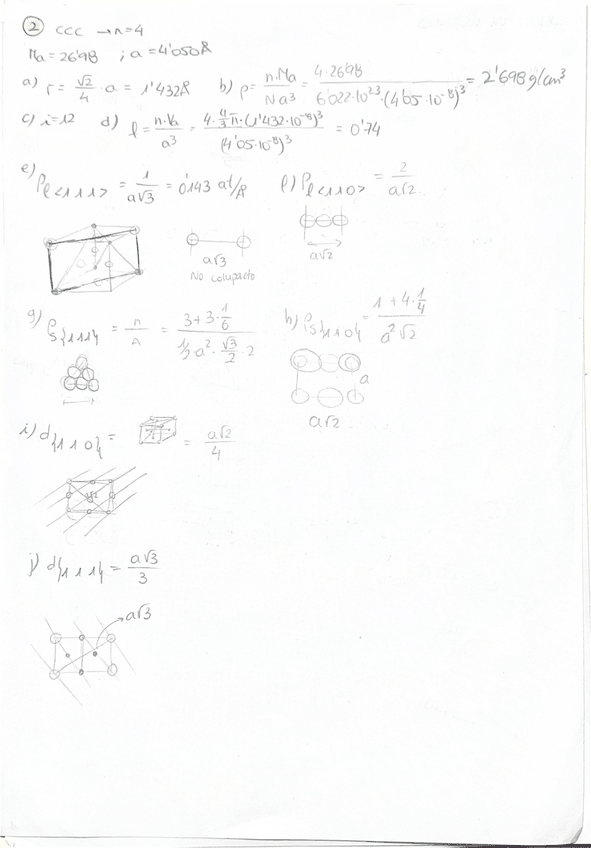 ② CCC → n=4
Ma = 26'98 ; a = 4'050Å
a) r = √2/4 · a = 1'432Å b) ρ = n·Ma/N a³ = 4·26'98/6'022·10²³·(4'05·10⁻⁸)³ = 2'698 g/cm³
c) i=12 d) f = n·Va/a³ = 4·4/3 π·(1'432·10⁻⁸)³/(4'05·10⁻⁸)³ = 0'74
e) ρl<111> = 1/a√3 = 0'143 at/Å f) ρl<110> = 2/a√2
a√3
No compacto
a√2
g) ρs{111} = n/A = 3+3·1/6 / 1/2·a²·√3/2·2 h) ρs{110} = 1+4·1/4 / a²√2
a
a√2
i) d{110} = = a√2/4
j) d{111} = a√3/3
a√3